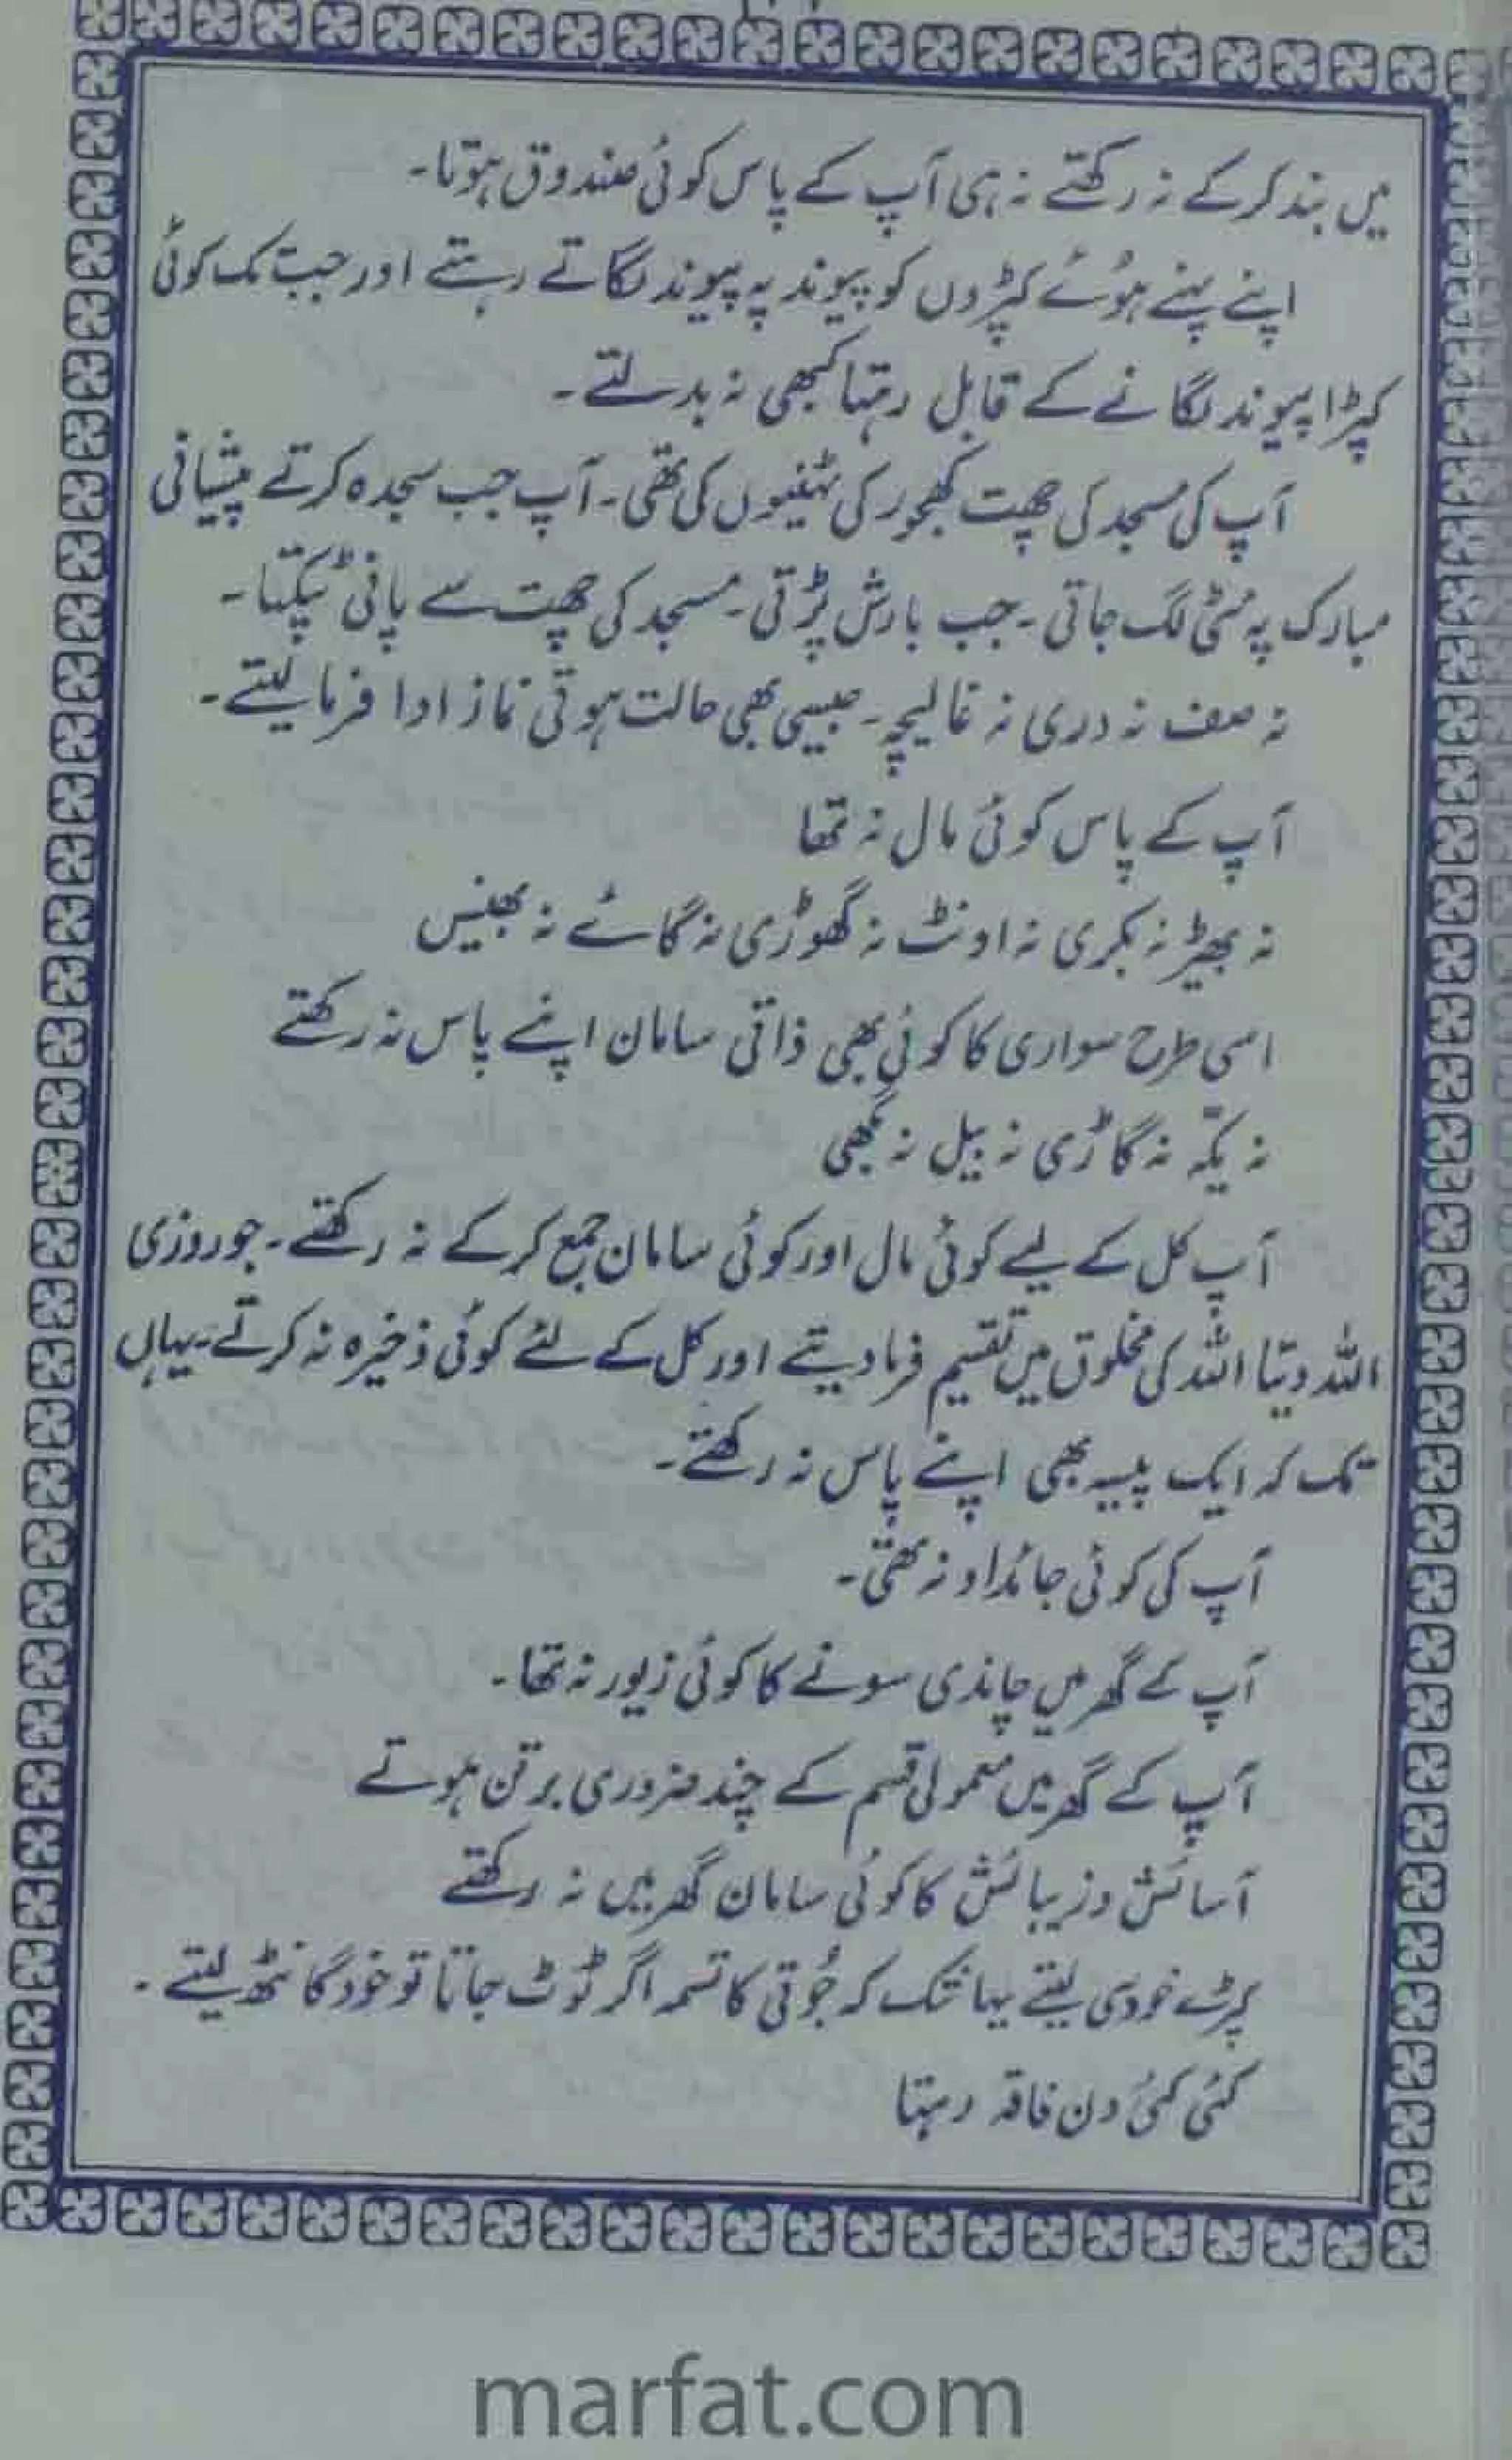 میں بند کر کے نہ رکھتے نہ ہی آپ کے پاس کوئی صندوق ہوتا۔
اپنے پہنے ہوئے کپڑوں کو پیوند پہ پیوند لگاتے رہتے اور جب تک کوئی
کپڑا پیوند لگانے کے قابل رہتا کبھی نہ بدلتے۔
آپ کی مسجد کی چھت کھجور کی ٹہنیوں کی تھی۔ آپ جب سجدہ کرتے پیشانی
مبارک پہ مٹی لگ جاتی۔ جب بارش پڑتی۔ مسجد کی چھت سے پانی ٹپکتا۔
نہ صف نہ دری نہ غالیچہ۔ جیسی بھی حالت ہوتی نماز ادا فرما لیتے۔
آپ کے پاس کوئی مال نہ تھا
نہ بھیڑ نہ بکری نہ اونٹ نہ گھوڑی نہ گائے نہ بھینس
اسی طرح سواری کا کوئی بھی ذاتی سامان اپنے پاس نہ رکھتے
نہ یکّہ نہ گاڑی نہ بیل نہ بگھی
آپ کل کے لیے کوئی مال اور کوئی سامان جمع کر کے نہ رکھتے۔ جو روزی
اللہ دیتا اللہ کی مخلوق میں تقسیم فرما دیتے اور کل کے لئے کوئی ذخیرہ نہ کرتے۔ یہاں
تک کہ ایک پیسہ بھی اپنے پاس نہ رکھتے۔
آپ کی کوئی جائداد نہ تھی۔
آپ کے گھر میں چاندی سونے کا کوئی زیور نہ تھا۔
آپ کے گھر میں معمولی قسم کے چند ضروری برتن ہوتے
آسائش و زیبائش کا کوئی سامان گھر میں نہ رکھتے
کپڑے خود سی لیتے یہانتک کہ جُوتی کا تسمہ اگر ٹوٹ جاتا تو خود گانٹھ لیتے۔
کئی کئی دن فاقہ رہتا
marfat.com